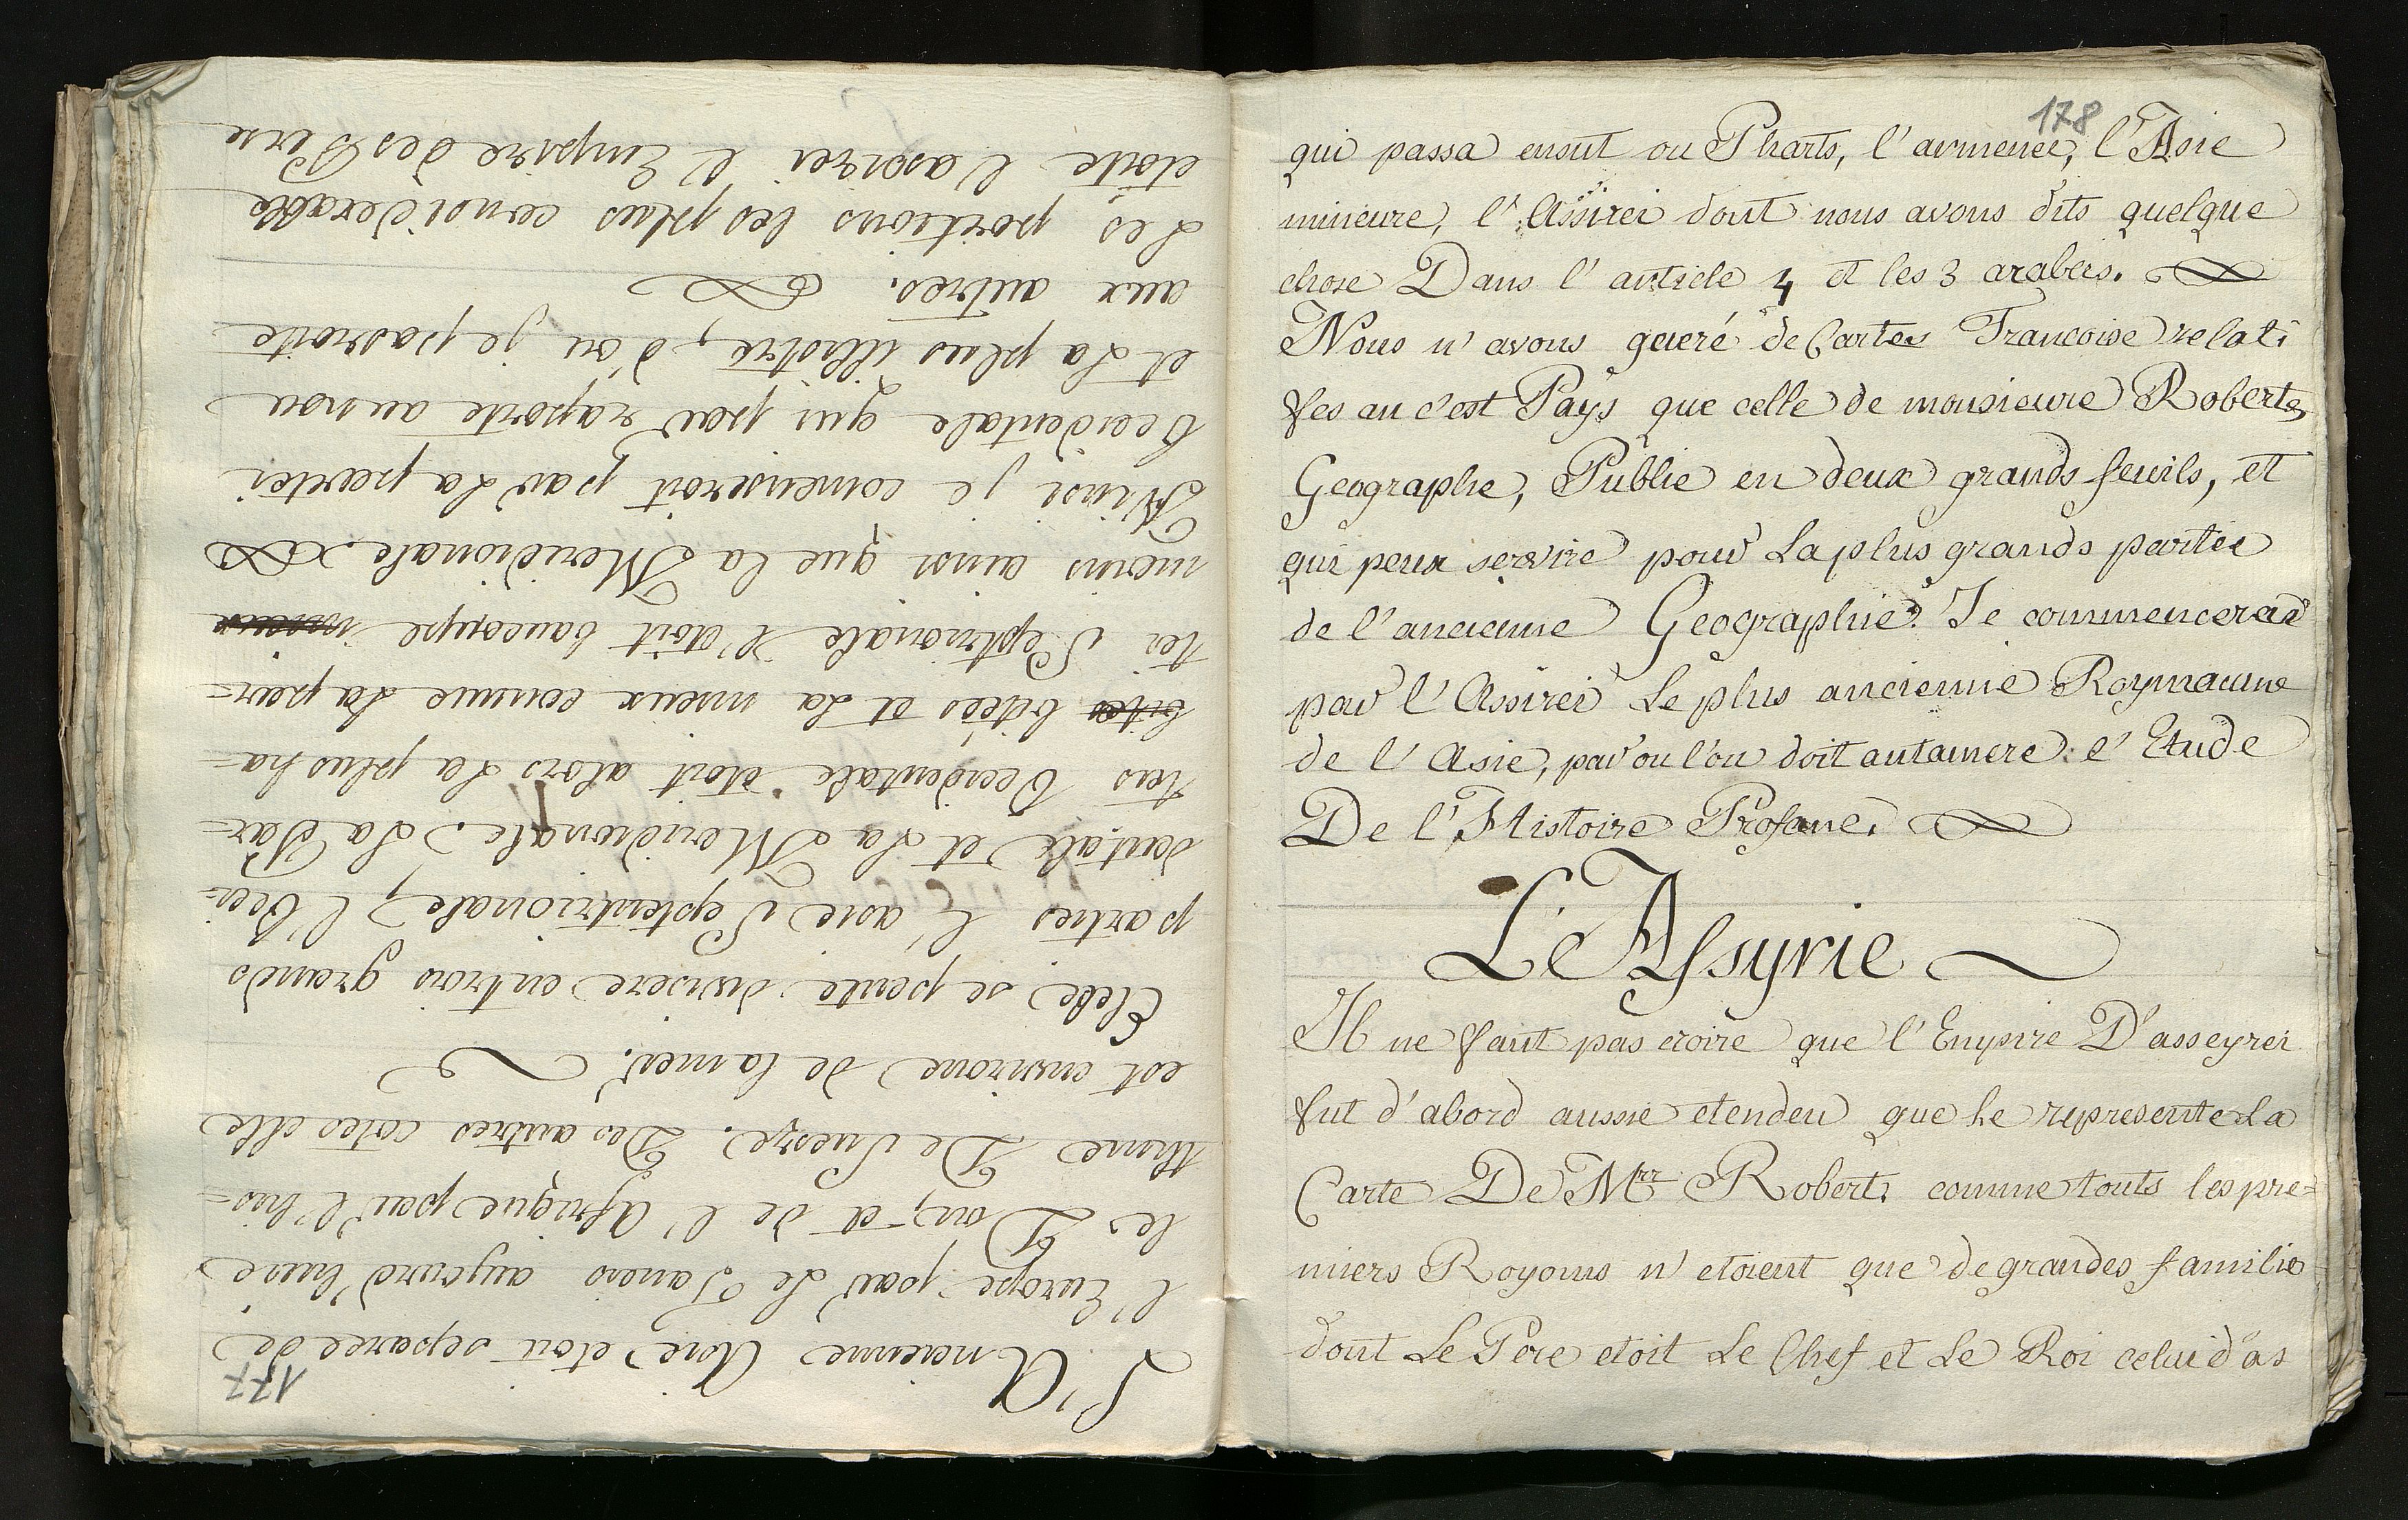 177
L'Ancienne Asie etoit separee de
l'Europe par Le Tanais aujourd'huere
le Don, et de l'Afrique par l'his-
thme De Suesze. Des autres cotes elle
est environe de la mer.
Elele se peute divisere entrois grands
parties l'asie Septentrionale, l'Occi-
dentale et La Meridionale. La Par-
ties Occidentale etoit alors La plus ha-
bites bitées et La mieux connue La par-
tei Septrionale l'etoit baucoupe
mieins ainsi que la Meridionale.
Ainsi je comenseroit par La partei
Occidentale qui par raporte aunou
et La plus illistre, d'ou je pasroite
aux autres.
Les portions les plus considerable
etoite l'assirei l'Empire des Perse
178
qui passa ensut ou Pharts, l'armenee, l'Asie
mineure, l'Assirei dont nous avons dits quelque
chose Dans l'article 4 et les 3 arabeis.
Nous n'avons gueré de Cartes Francoise relati
fes au c'est Pays que celle de monsieure Roberts
Geographe, Publie en deux grands feuils, et
qui peux servire pour La plus grands partee
de l'ancienne Geographie. Je commencerae
par l'Assirei Le plus ancienne Roymaume
de l'Asie, par ou l'on doit antamere l'Etude
De l'Histoire Profane.
L'e Assyrie
Il ne faut pas croire que l'Empire D'asseyrei
fut d'abord aussie etendeu que he represente La
Carte De Mrr Robert, comme touts les pre=
miers Royoms n'etoient que de grandes familie
dont Le Pere etoit Le Chef et Le Roi celui d'as